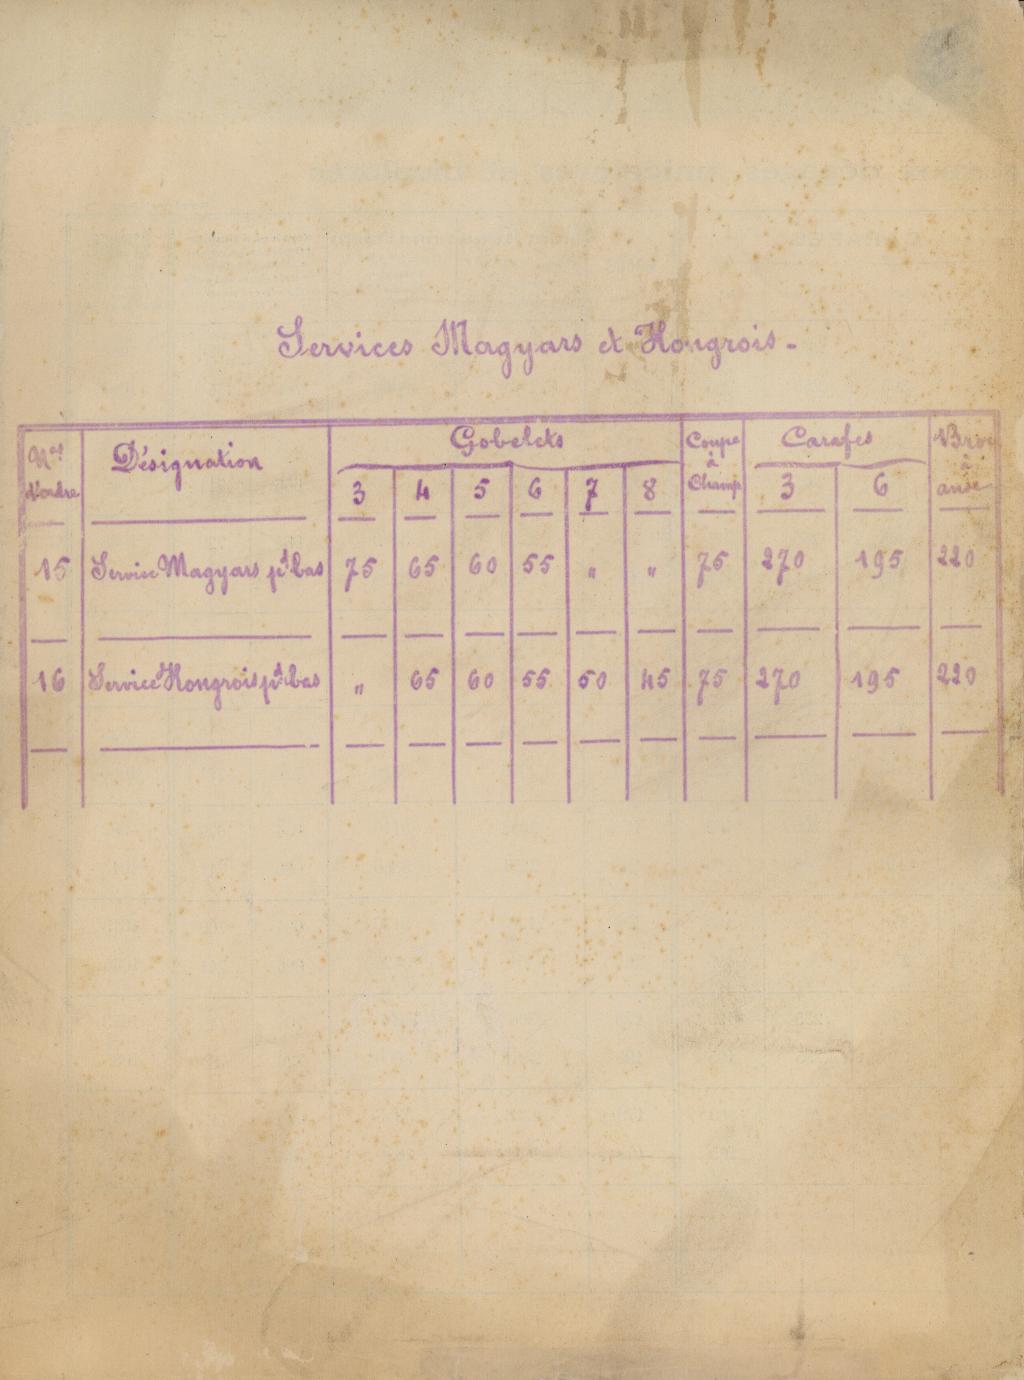 Services Magyars et Hongrois.
Nos d'ordre Désignation Gobelets Coupe à Champ Carafes Broc à anse
3 4 5 6 7 8 3 6
15 Service Magyars pd bas 75 65 60 55 " " 75 270 195 220
16 Service Hongrois pd bas " 65 60 55 50 45 75 270 195 220